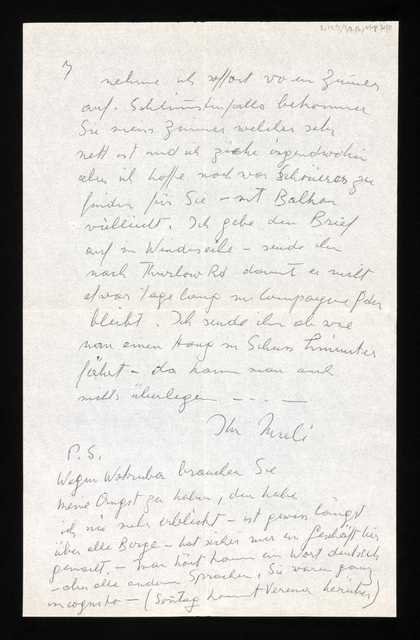 nehme ich sofort wo ein Zimmer
auf. Schlimmstenfalls bekommen
Sie meins Zimmer welches sehr
nett ist und ich ziehe irgendwohin
aber ich hoffe noch was Schöneres zu
finden für Sie – mit Balkon
vielleicht. Ich gebe den Brief
auf in Windeseile – sende ihn
nach Thurlow Rd damit er nicht
etwa Tage lang in
bleibt. Ich sende ihn ab wie
man einen Hang in Schuss hinunter
fährt – da kann man auch
nichts überlegen - - - —
Ihr
P.S.
Wegen Wotruba brauchen Sie
keine Angst zu haben, den habe
ich nie mehr erblickt – ist gewiss längst
über alle Berge – hat sicher nur ein Geschäft hier
gemacht. – Man hört kaum ein Wort deutsch
– aber alle anderen Sprachen, Sie wären ganz
incognito – (Sontag kommt Verena herüber)